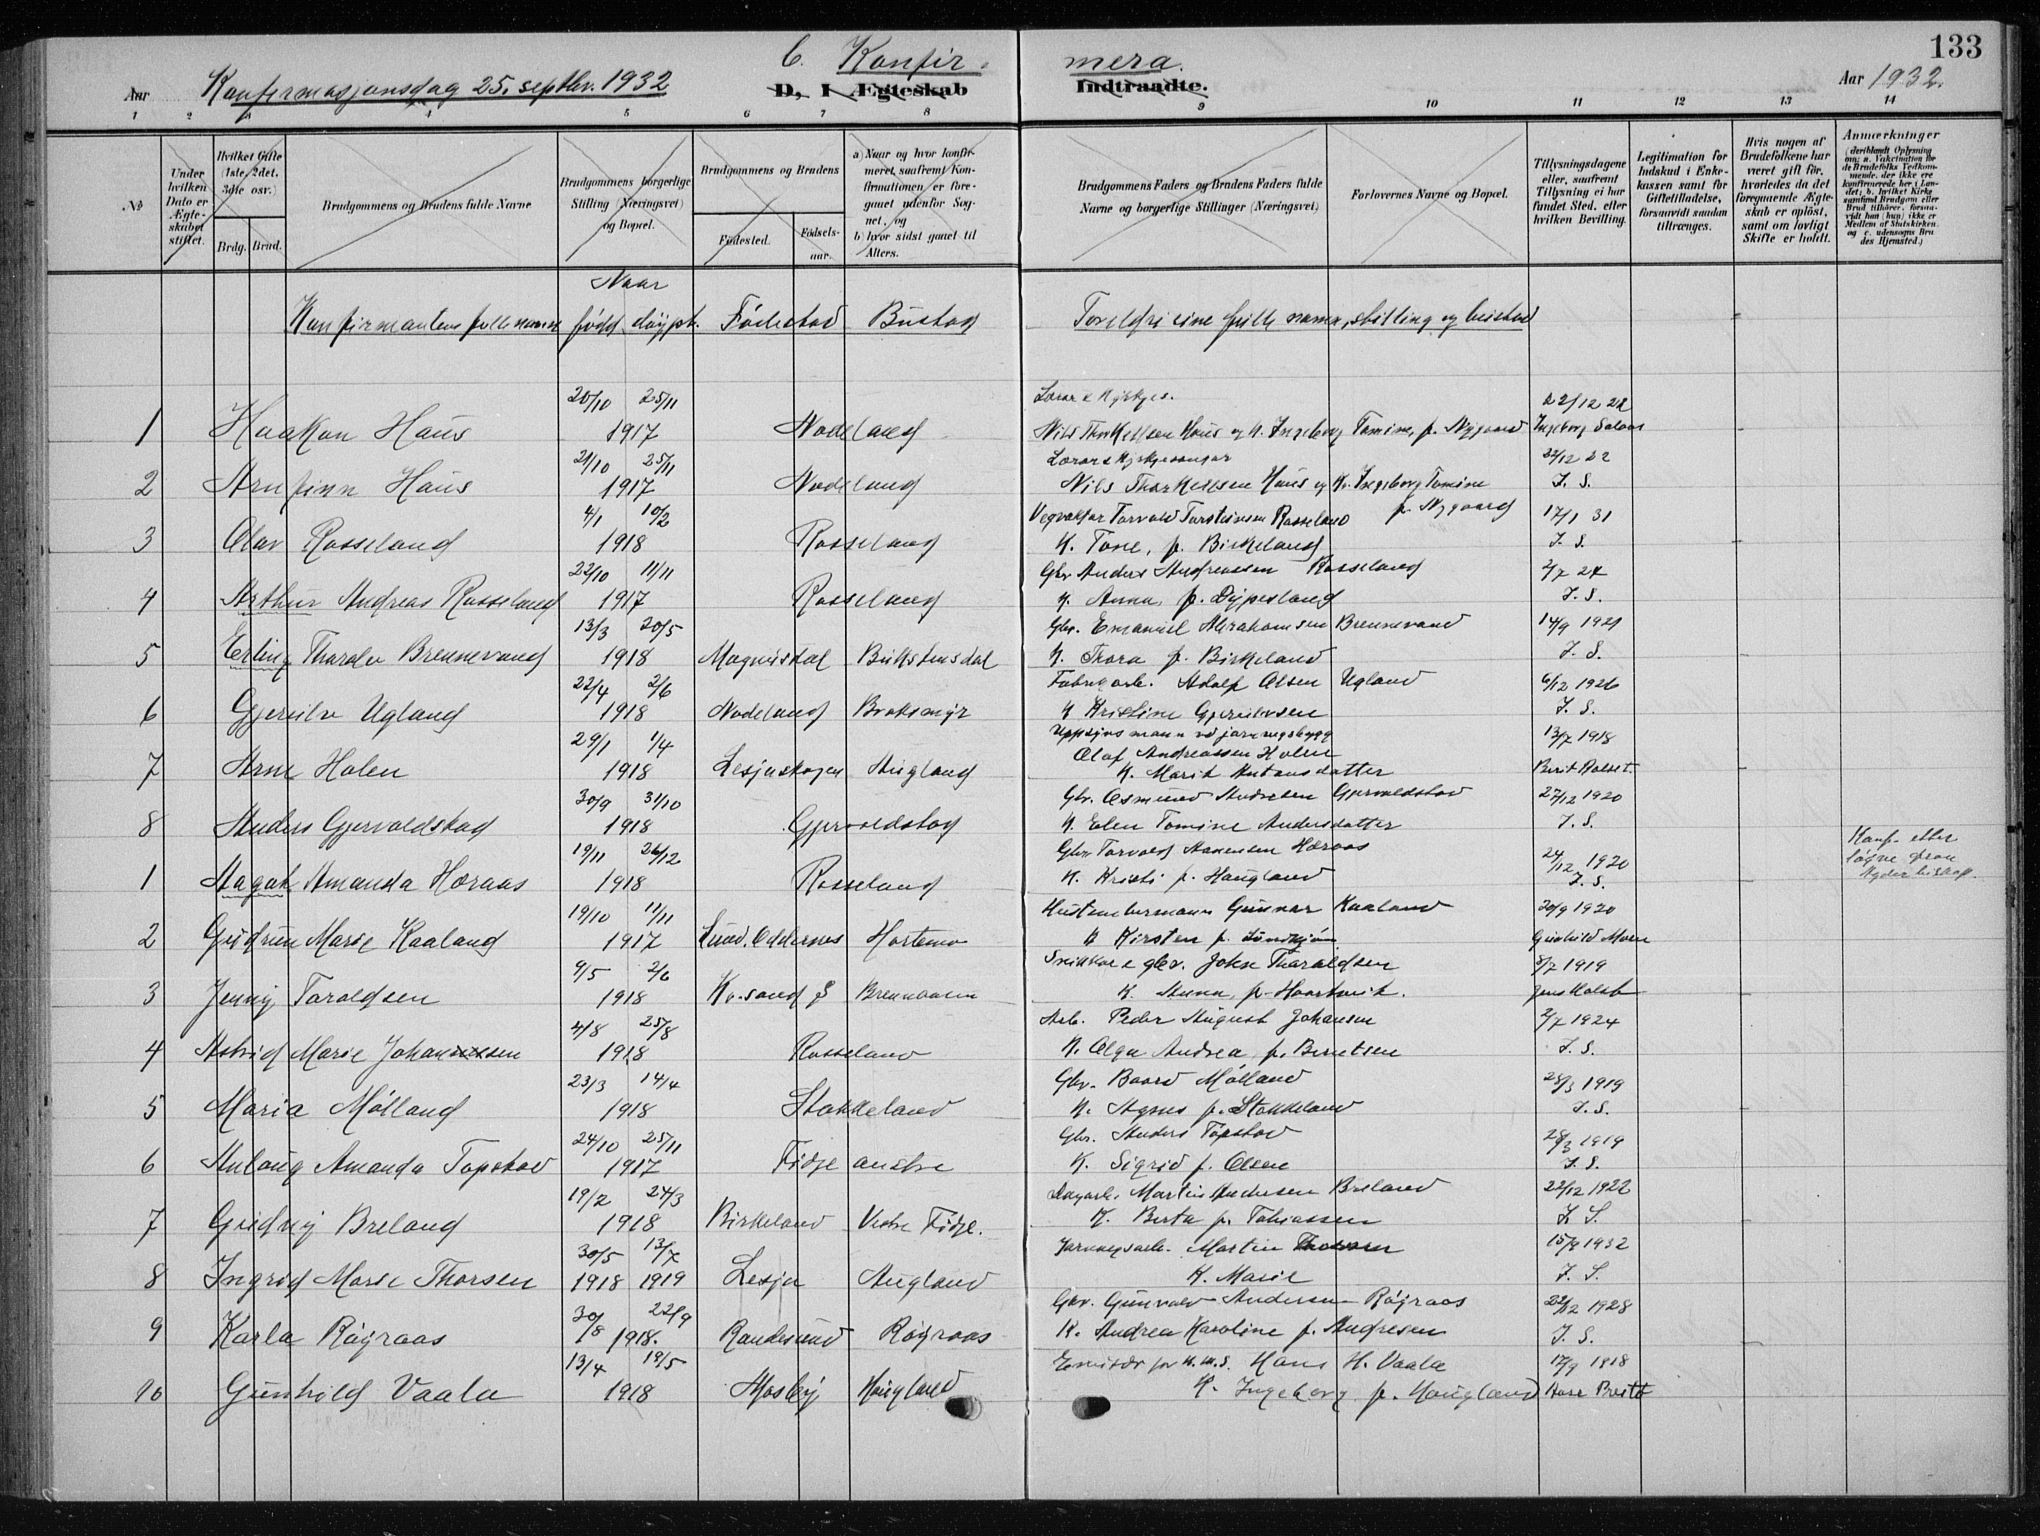 133
C. Konfir- mera.
Aar Konfirmasjonsdag 25. septbr. 1932 D, 1 Ægteskab Indtraadte. Aar 1932.
1 2 3 4 5 6 7 8 9 10 11 12 13 14
№
Under hvilken Dato er Ægteskabet stiftet.
Hvilket Gifte (1ste, 2det, 3die osv.)
Brdg. Brud.
Brudgommens og Brudens fulde Navne
Brudgommens borgerlige Stilling (Næringsvei) og Bopæl.
Brudgommens og Brudens
Fødested. Fødselsaar.
a) Naar og hvor konfirmeret, saafremt Konfirmationen er foregaaet udenfor Sognet, og
b) hvor sidst gaaet til Alters.
Brudgommens Faders og Brudens Faders fulde Navne og borgerlige Stillinger (Næringsvei)
Forlovernes Navne og Bopæl.
Tillysningsdagene eller, saafremt Tillysning ei har fundet Sted, efter hvilken Bevilling.
Legitimation for Indskud i Enkekassen samt for Giftetilladelse, forsaavidt saadan tiltrænges.
Hvis nogen af Brudefolkene har været gift før, hvorledes da det foregaaende Ægteskab er opløst, samt om lovligt Skifte er holdt.
Anmærkninger
(deriblandt Oplysning om: a. Vakcination for de Brudefolks Vedkommende, der ikke ere konfirmerede her i Landet; b. hvilket Kirkesamfund Brudgom eller Brud tilhører, forsaavidt han (hun) ikke er Medlem af Statskirken, og c. udensogns Brudes Hjemsted.)
Naar
Konfirmantens fulle namn født døypt. Fødestad Bustad Foreldri sine fulle namn, stilling og bustad
20/10 25/11 Lærar & kyrkjes. 22/12 22
1 Haakon Haus 1917 Nodeland Nils Thorkellsen Haus og k. Ingeborg Tomine, f. Nygaard Ingeborg Salaas
21/10 25/11 Lærar & kyrkjesongar 22/12 22
2 Arnfinn Haus 1917 Nodeland Nils Thorkellsen Haus og k. Ingeborg Tomine f. Nygaard J. S.
4/1 10/2 Vegvaktar Torvald Torsteinsen Rosseland 17/1 31
3 Olav Rosseland 1918 Rosseland K. Tone, f. Birkeland J. S.
22/10 11/11 Gbr. Anders Andreassen Rosseland 2/7 27
4 Arthur Andreas Rosseland 1917 Rosseland K. Anna, f. Dypesland J. S.
13/3 20/5 Gbr. Emanuel Abrahamsen Brennevand 14/9 1921
5 Erling Tharder Brennevand 1918 Magnusdal Bukstensdal K. Thora f. Birkeland J. S.
22/4 2/6 Fabrikarb. Adolf Olsen Ugland 6/12 1926
6 Gjerulv Ugland 1918 Nodeland Broksmyr K Kristine Gjerulvsen J. S.
29/1 1/4 Uppsjonsmann ved jarnvegsbygg 13/7 1918
7 Arne Holen 1918 Lesjaskogen Augland Olaf Andreassen Holen
K. Marit Antonsdatter Berit Rolset.
30/9 31/10 Gbr. Osmund Andresen Gjervoldstad 27/12 1920
8 Anders Gjervoldstad 1918 Gjervoldstad K. Elen Tomine Andersdatter J. S.
19/11 26/12 Gbr. Torvald Aanensen Høraas 24/12 1920 Konf. etter løyve fraa Agder biskop.
1 Aagot Amanda Høraas 1918 Rosseland K. Kristi f. Haugland J. S.
19/10 11/11 Gunnar Kaaland 20/9 1920
2 Gudrun Marie Kaaland 1917 Lund, Oddernes Hortemo K Kirsten f. Gunhild Moen
9/5 2/6 Snikkar & gbr. John Tharaldsen 5/7 1919
3 Jenny Taraldsen 1918 Kr.sand S Brennaasen K. Anna, f. Haartveit. Jens Holst
4/8 25/8 Arb. Peder August Johansen 2/7 1924
4 Astrid Marie Johannesen 1918 Rosseland K. Olga Andrea, f. Berntsen J. S.
23/3 14/4 Gbr. Baard Mølland 28/3 1919
5 Maria Mølland 1918 Stokkeland K. Agnes f. Stokkeland J. S.
24/10 25/11 Gbr. Anders Topstad 28/3 1919
6 Anlaug Amanda Topstad 1917 Fidje austre K. Sigrid f. Olsen J. S.
19/2 24/3 Dagarb. Martin Andersen Breland 22/12 1922
7 Gudny Breland 1918 Birkeland Vestre Fidje. K. Berta f. Tobiassen J. S.
30/5 13/7 Jarnvegsarb. Martin Thorsen 15/9 1932
8 Ingrid Marie Thorsen 1918 1919 Lesja Augland K. Marie J. S.
30/8 22/9 Gbr. Gunvald Andersen Røyraas 22/12 1928
9 Karla Røyraas 1918. Randesund Røyraas K. Andrea Karoline f. Andresen J. S.
13/4 19/5 Emissær for K.M.S. Hans H. Vaala 17/9 1918
10 Gunhild Vaala 1918 Mosby Haugland K. Ingeborg f. Haugland Aase Breste